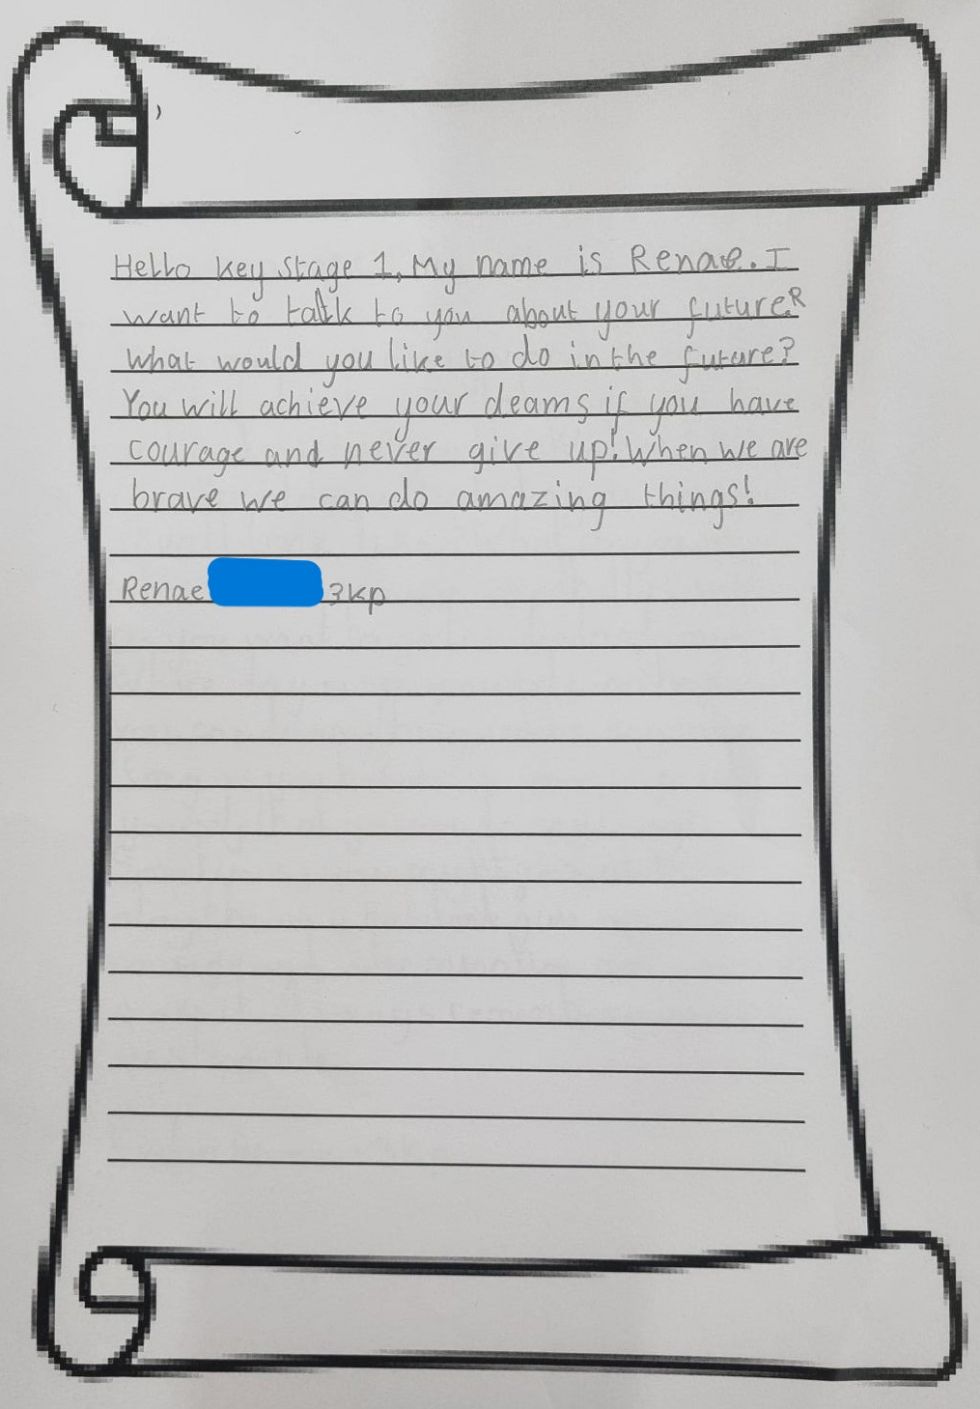 Hello key stage 1, My name is Renae. I
want to talk to you about your future.
What would you like to do in the future?
You will achieve your deams if you have
courage and never give up! When we are
brave we can do amazing things!
Renae 3kp